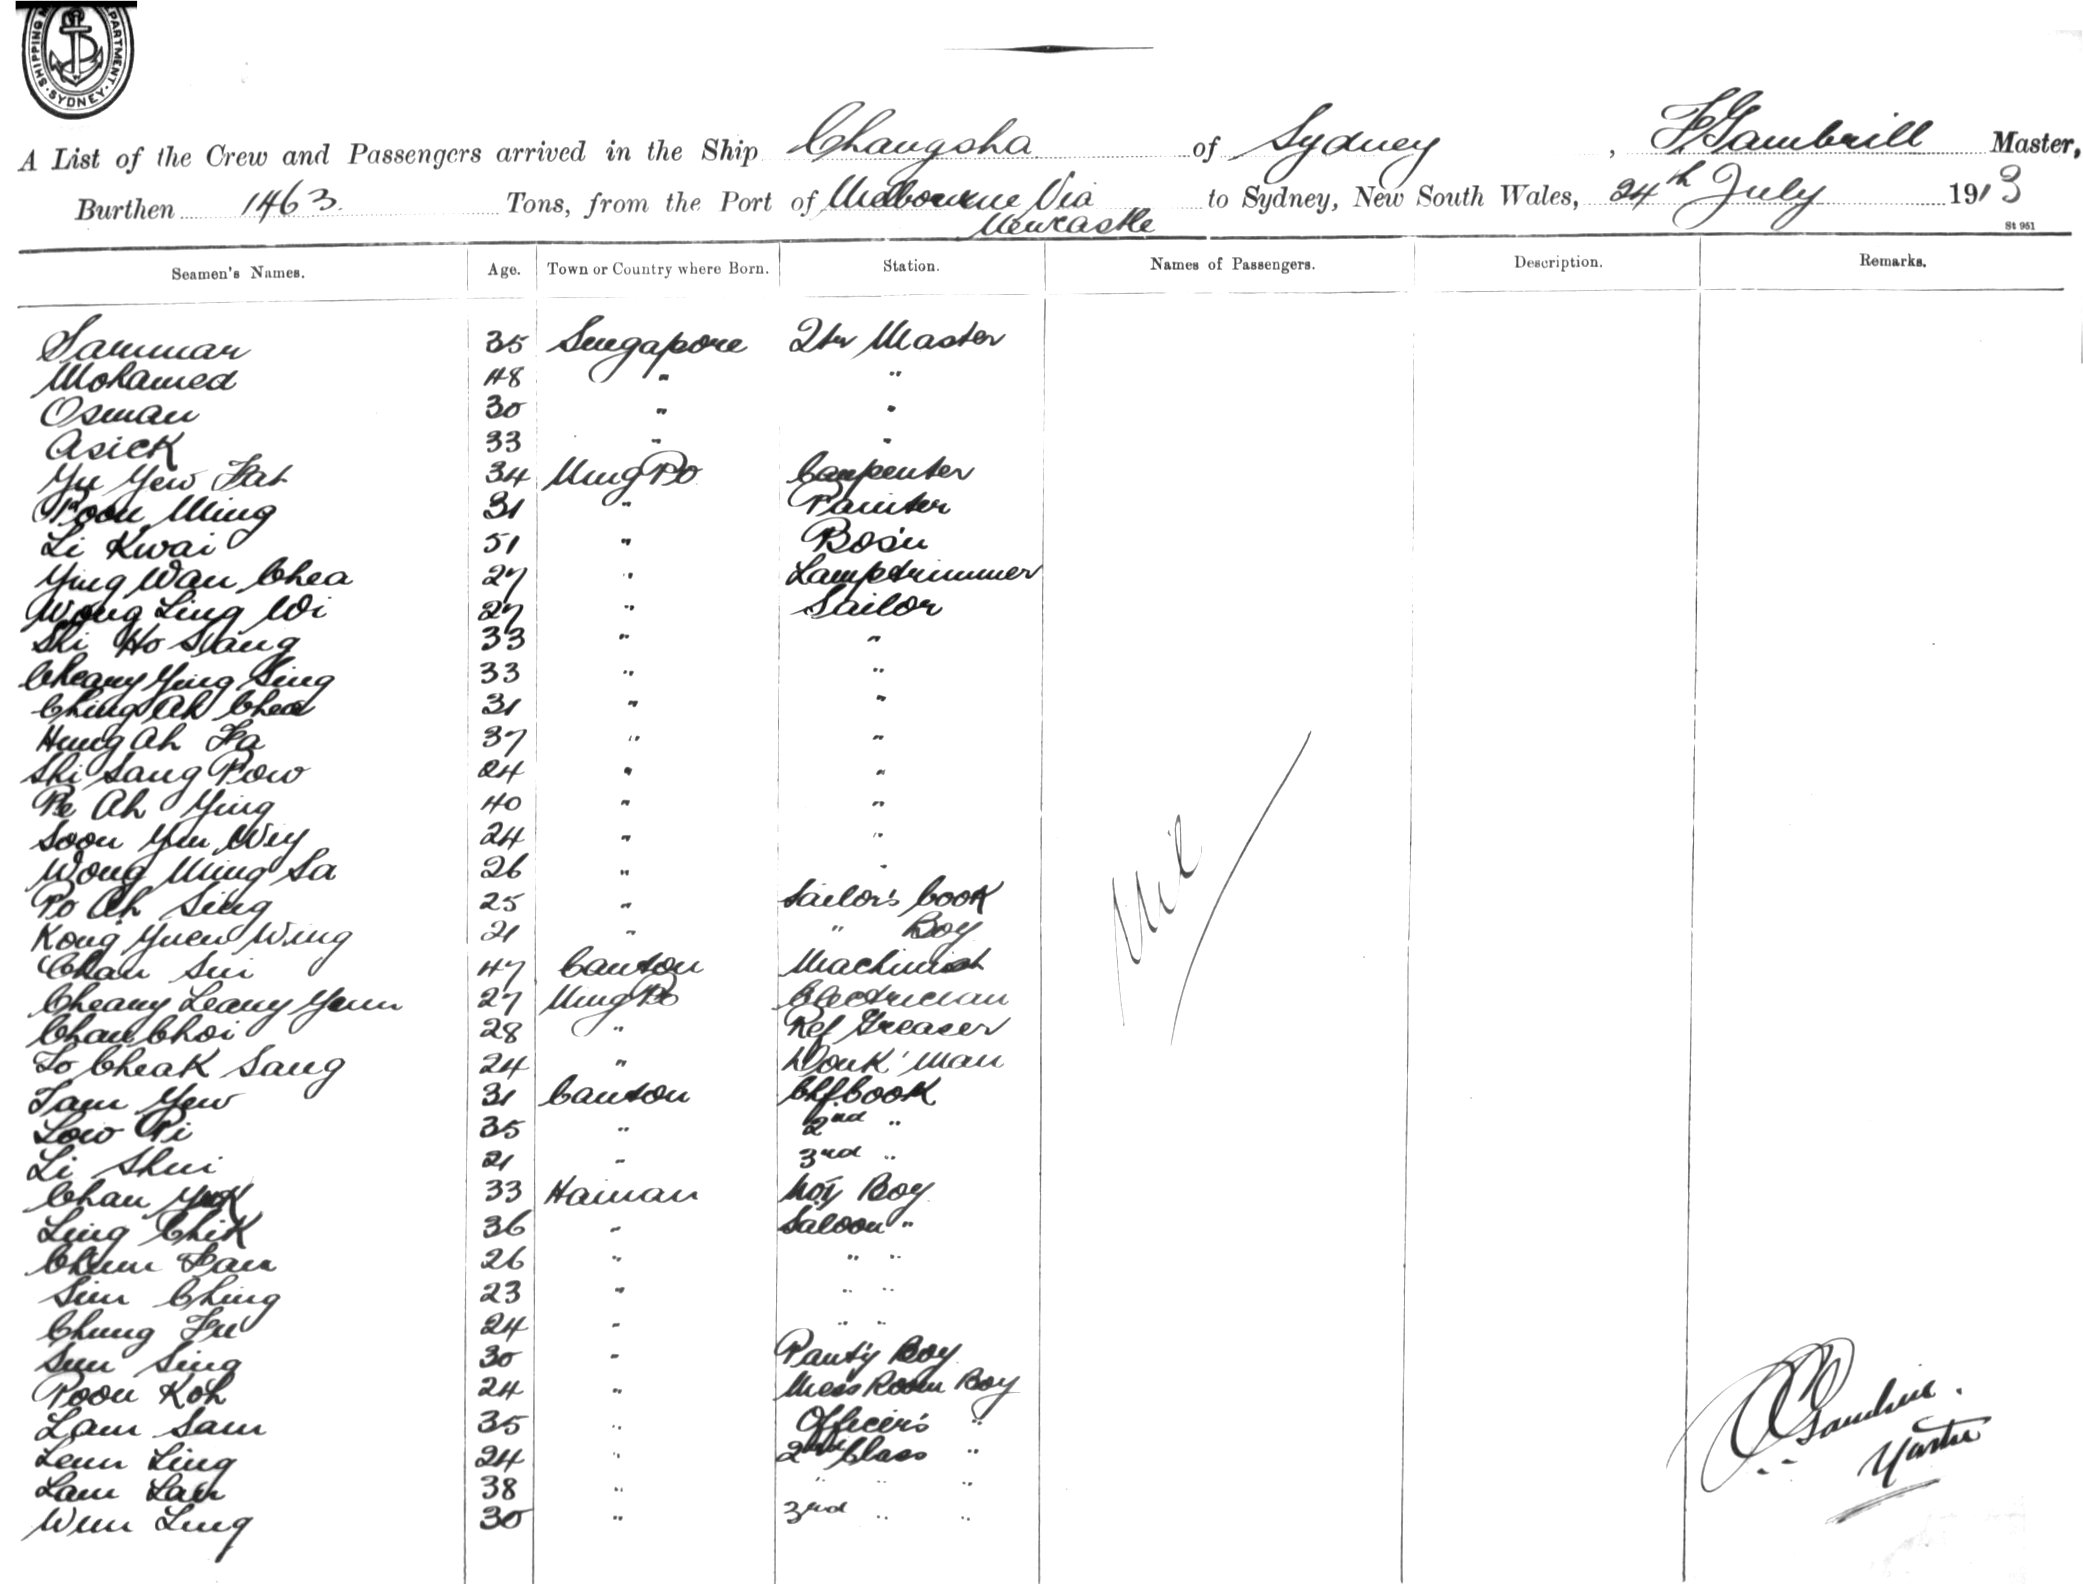 SHIPPING DEPARTMENT. SYDNEY
A List of the Crew and Passengers arrived in the Ship Changsha of Sydney, F Gambrill Master,
Burthen 1463 Tons, from the Port of Melbourne Via Newcastle to Sydney, New South Wales, 24th July 1913
St 951
Seamen's Names. Age. Town or Country where Born. Station. Names of Passengers. Description. Remarks.
Sammar 35 Singapore Qtr Master
Mohamed 48 " "
Osman 30 " "
Asick 33 " "
Yu Yew Fat 34 Ning Po Carpenter
Poon Ming 31 " Painter
Li Kwai 51 " Bos'n
Ying Wan Chea 27 " Lamptrimmer
Wong Ling Wi 27 " Sailor
Shi Ho Siang 33 " "
Cheang Ying Sing 33 " "
Ching Ah Chea 31 " "
Hung Ah Fa 37 " "
Shi Sang Pow 24 " "
Pe Ah Ying 40 " "
Soon Yun Wey 24 " "
Wong Ming Sa 26 " "
Po Ah Sing 25 " Sailor's Cook
Kong Yuen Wing 21 " " Boy
Chan Sui 47 Canton Machinist
Cheang Leang Yum 27 Ning Po Electrician
Chan Choi 28 " Ref Greaser
Lo Cheak Sang 24 " Donk' man
Tam Yew 31 Canton Chf Cook
Low Pi 35 " 2nd "
Li Shui 21 " 3rd "
Chan Yuok 33 Hainan Boy
Ling Chik 36 " Saloon "
Chum Fan 26 " " "
Sim Ching 23 " " "
Chung Fu 24 " " "
Sun Sing 30 " Pant'y Boy
Poon Koh 24 " Mess Room Boy
Lam Sam 35 " Officer's "
Lenn Ling 24 " 2nd Class "
Lam Lan 38 " " " "
Wun Ling 30 " 3rd " "
Nil
F Gambrill.
Master